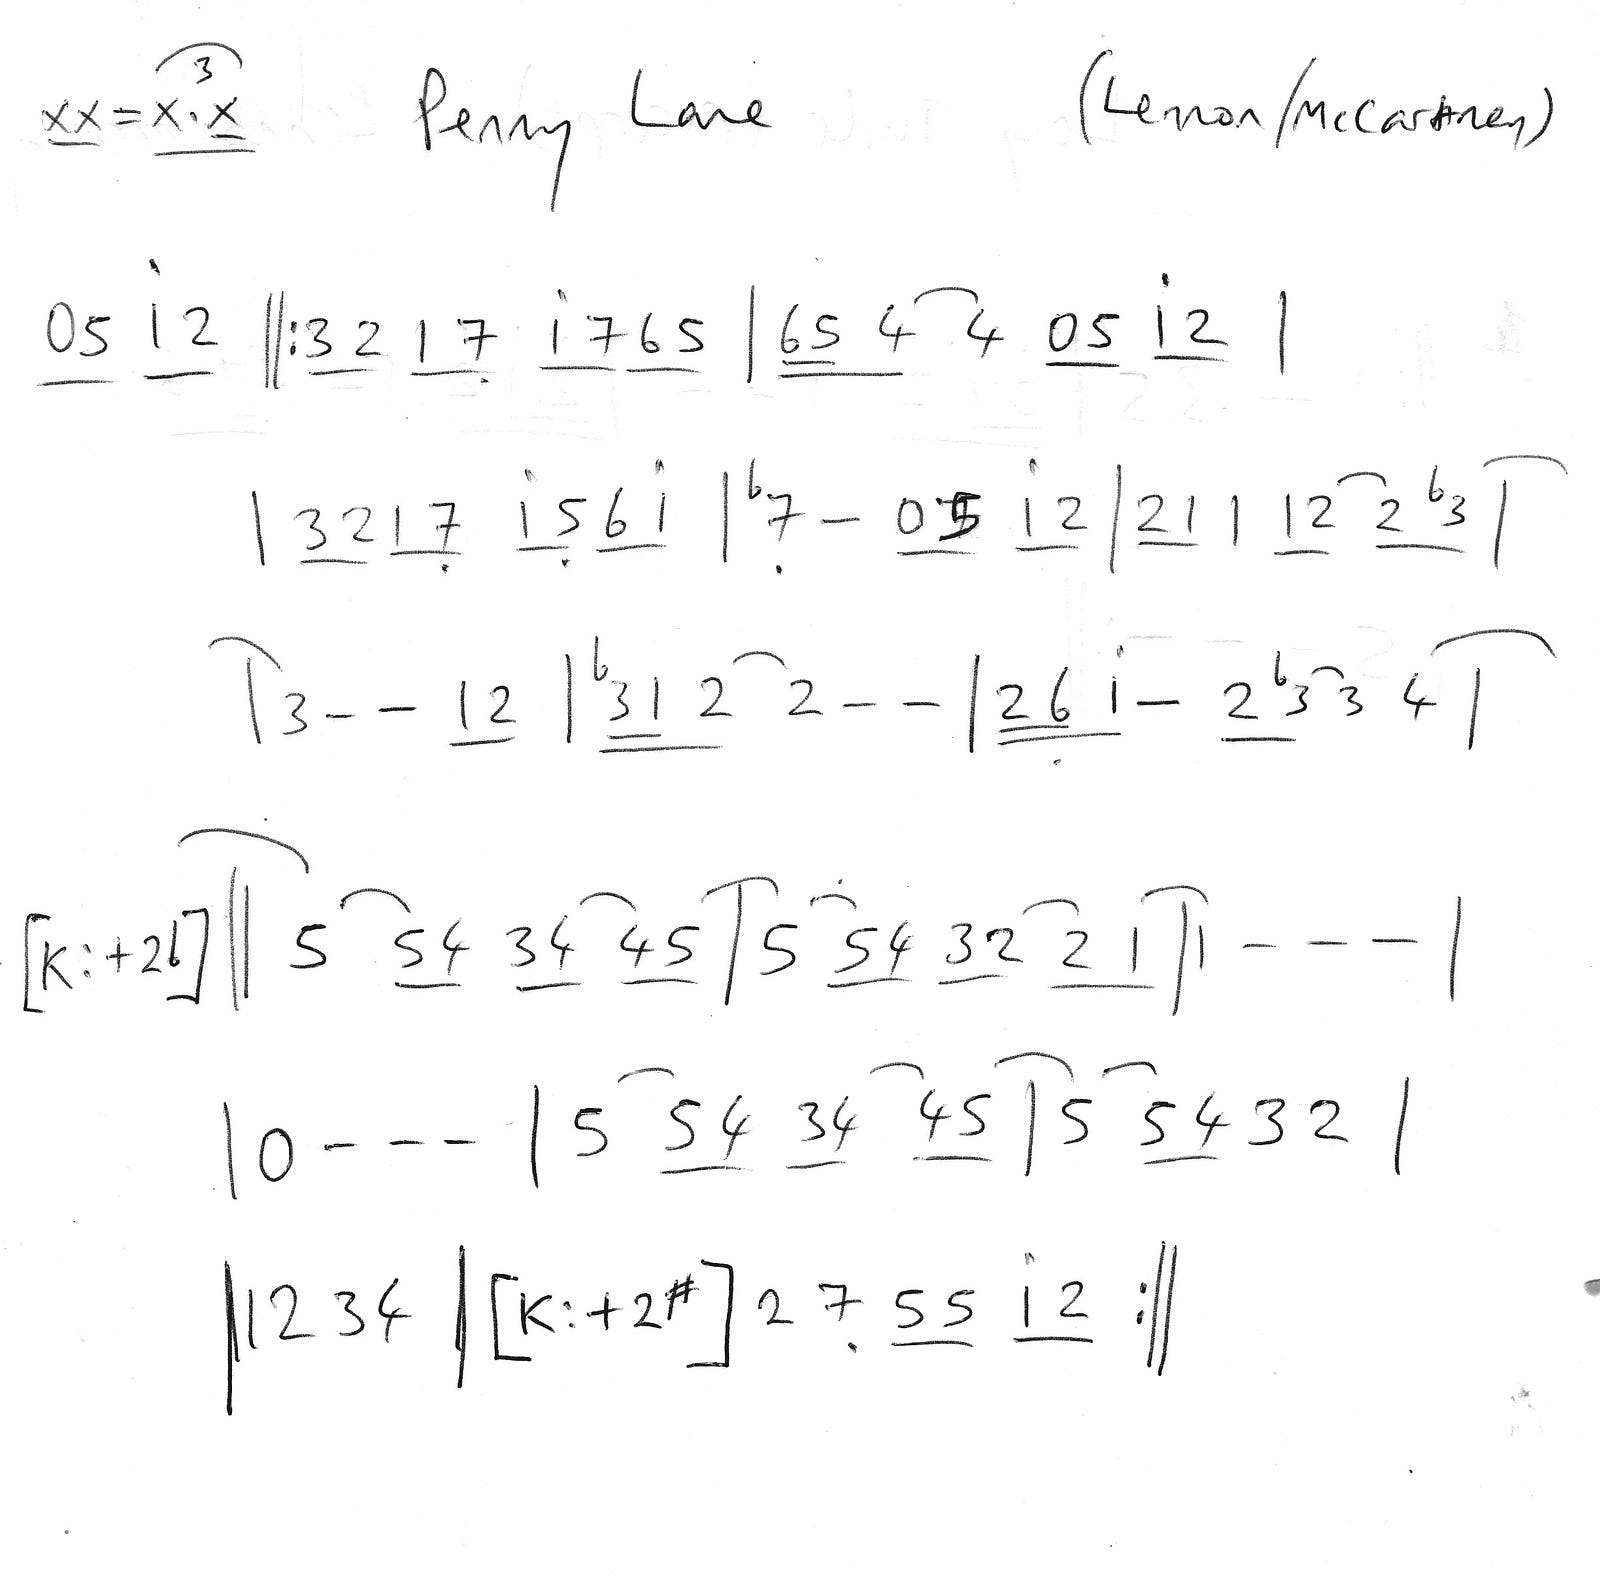 xx=x.x 3 Penny Lane (Lennon/McCartney)
05 i2 ‖:32 17 i765 |65 4 4 05 i2 |
|3217 i56i |b7 – 05 i2 |21 1 12 2 b3|
|3 – – 12 |b31 2 2 – – |26 i – 2 b3 3 4|
[K:+2b] ‖ 5 54 34 45 |5 54 32 21 |1 – – – |
|0 – – – |5 54 34 45 |5 54 3 2 |
|1 2 3 4 |[K:+2#] 2 7 55 i2 :‖